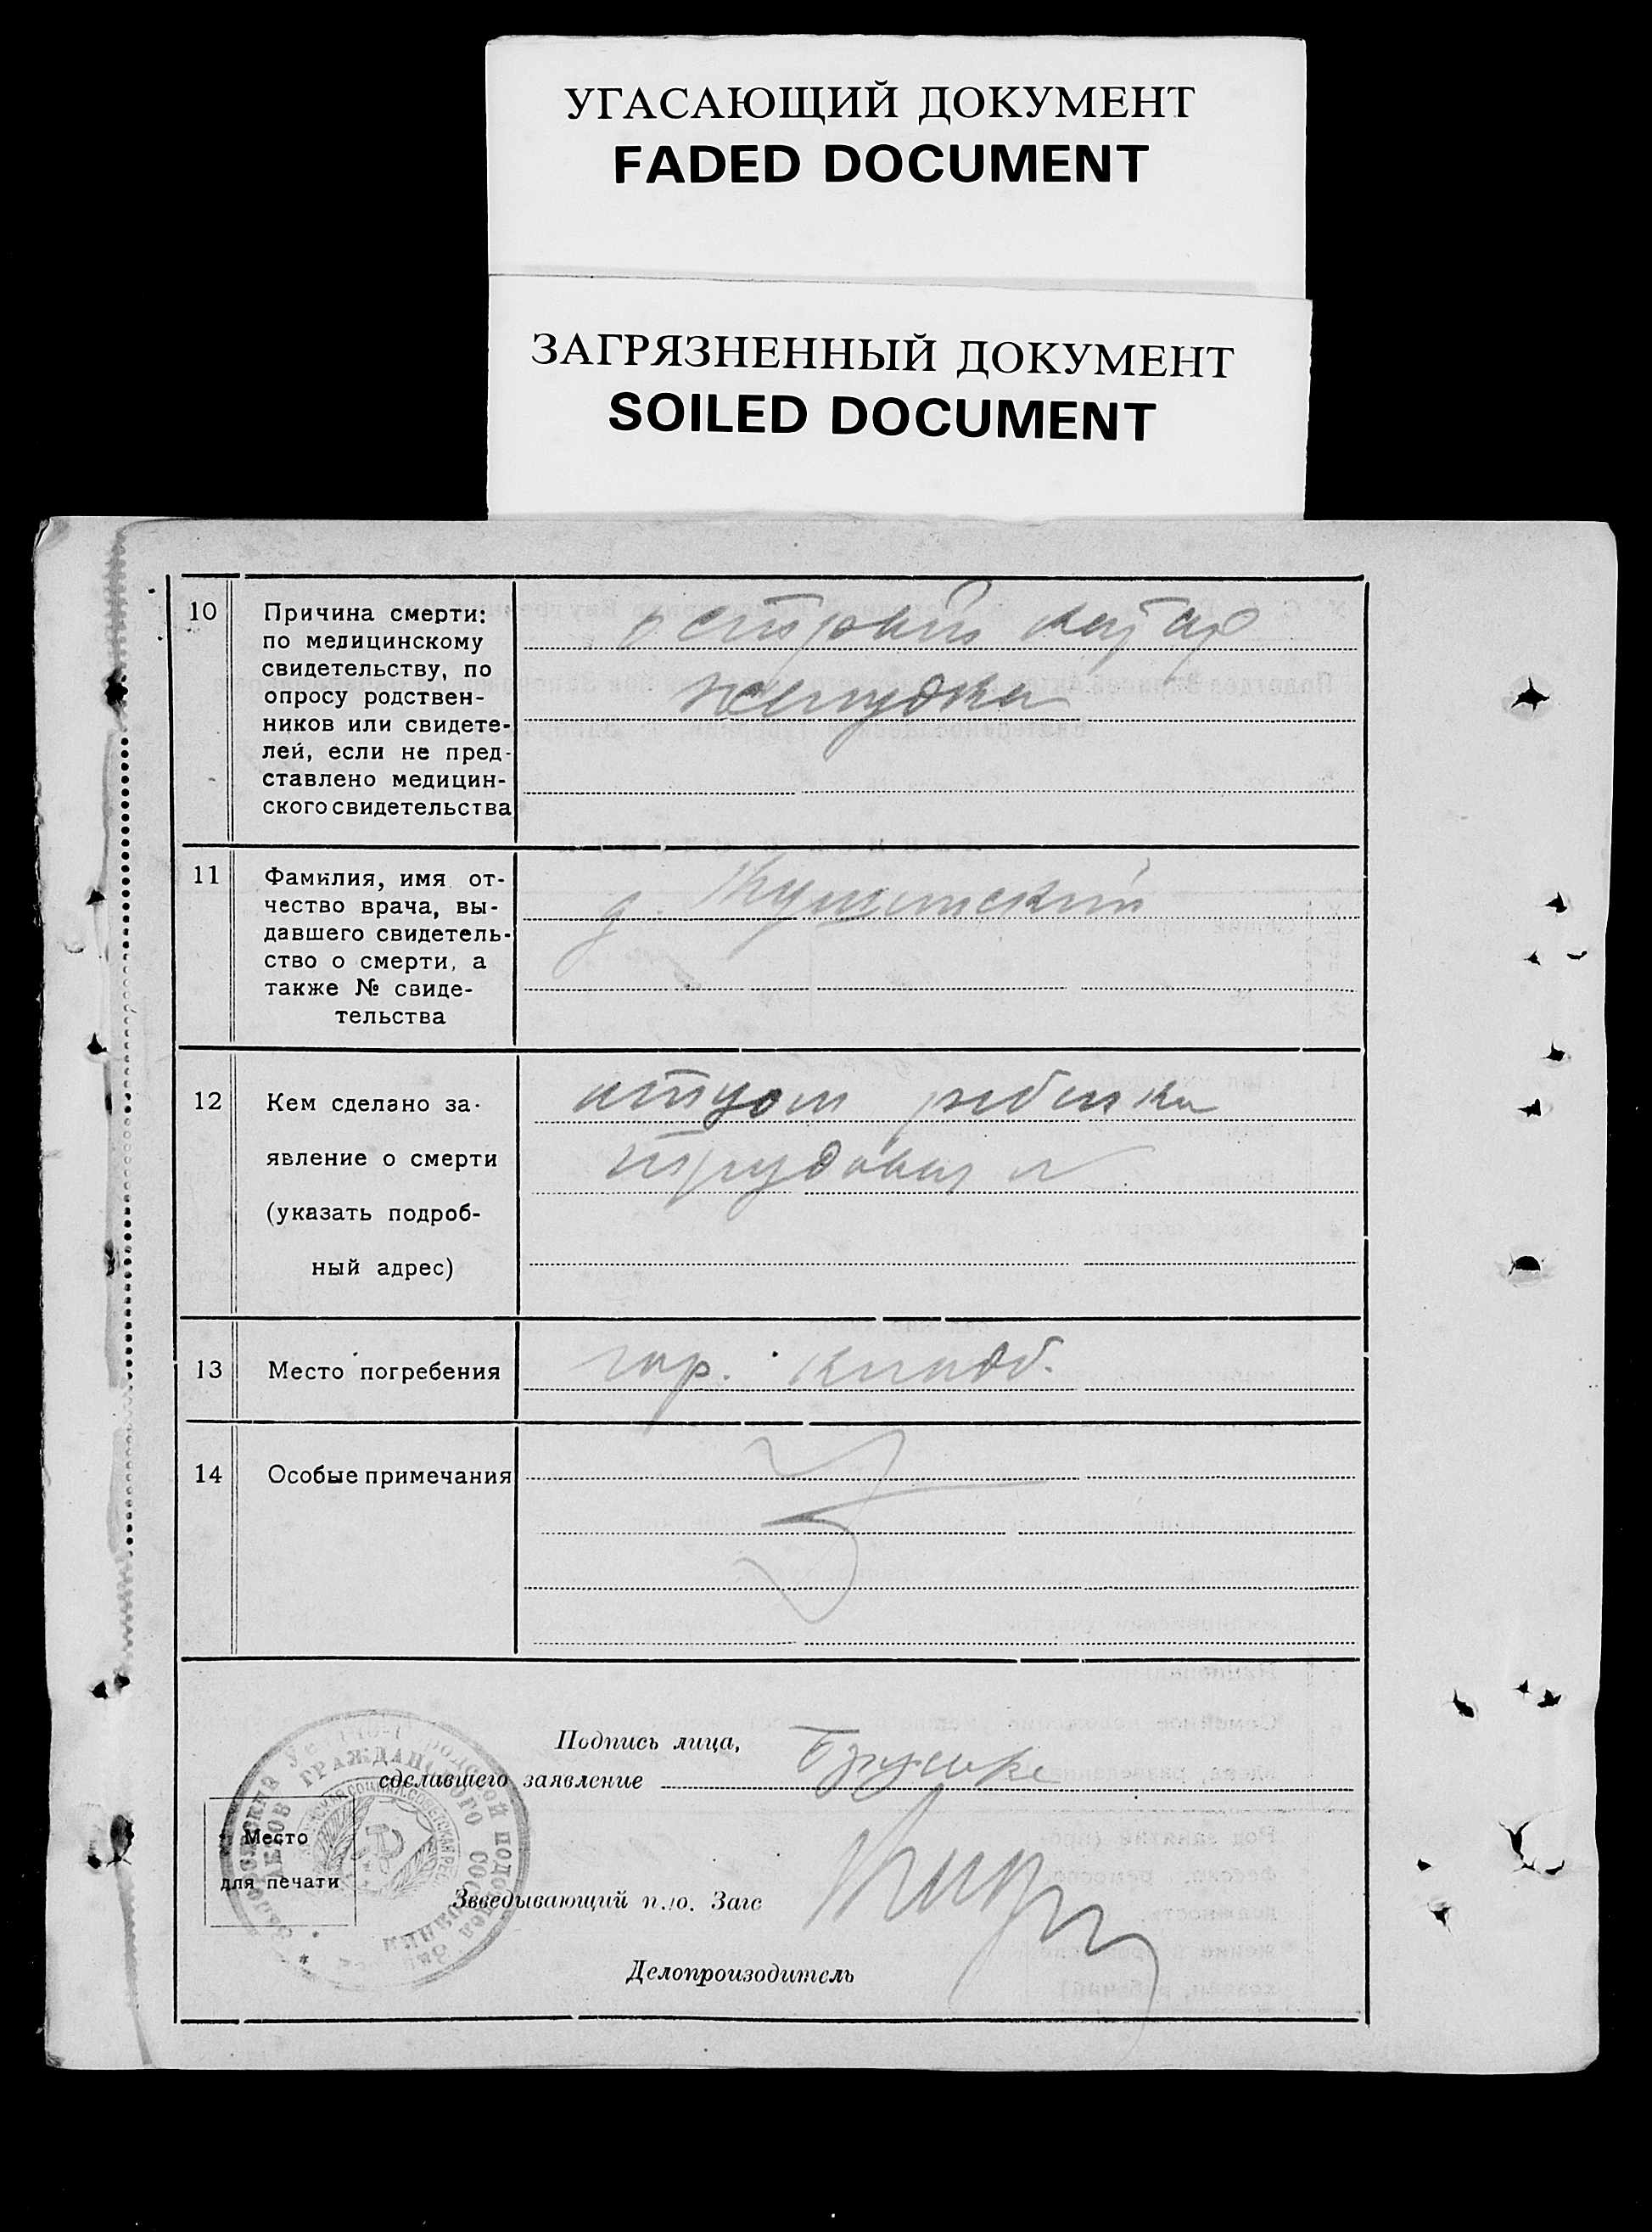 УГАСАЮЩИЙ ДОКУМЕНТ
FADED DOCUMENT
ЗАГРЯЗНЕННЫЙ ДОКУМЕНТ
SOILED DOCUMENT
10 Причина смерти:
по медицинскому
свидетельству, по
опросу родствен-
ников или свидете-
лей, если не пред-
ставлено медицин-
ского свидетельства
острый катар
желудка
11 Фамилия, имя от-
чество врача, вы-
давшего свидетель-
ство о смерти, а
также № свиде-
тельства
12 Кем сделано за-
явление о смерти
(указать подроб-
ный адрес)
отцом ребенка
13 Место погребения
гор. кладб.
14 Особые примечания
Подпись лица,
сделавшего заявление
Место
для печати
Зведывающий п./о. Загс
Делопроизодитель
ГРАЖДАНСКОГО